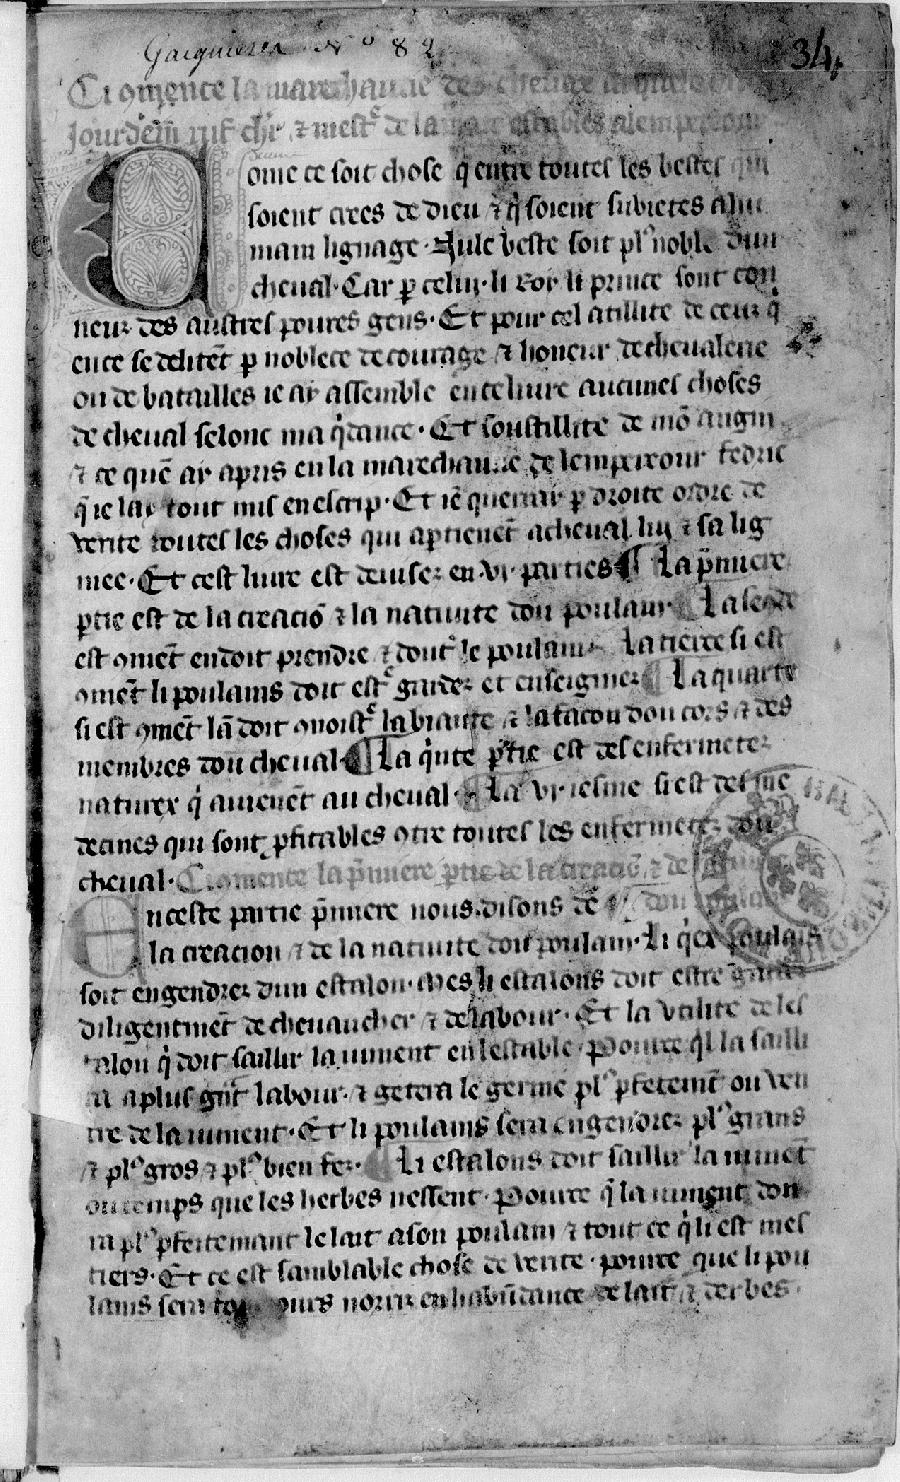 Gaignieres N° 82
34
Ci ꝯmence la marechaucie des cheuax
Jourdein rus chr̄ ⁊ mestᵉ de la estables alempereour
Ome ce soit chose q̄ entre toutes les bestes qui
soient crees de dieu ⁊ q̄ soient subietes a lu
main lignage· Nule beste soit plꝰ noble dun
cheual· Car ꝑ celui· li roy li prince sont con
neuz des austres poures gens· Et pour cel atillite de ceuz q̄
ence se delitēt ꝑ noblece de courage ⁊ honeur de cheualerie
ou de batailles ie ay assemble en ce liure aucunes choses
de cheual selonc ma q̄dance· Et soustillite de mō angin
⁊ ce quē ay apris en la marechaucie de lempereour fedric
q̄ ie lay tout mis en escrip· Et iē querrai ꝑ droite ordre de
verite toutes les choses qui aptienēt a cheual lui ⁊ sa lig
niee· Et cest liure est deuisez en vi· parties ¶ La p̄miere
ꝑtie est de la creaciō ⁊ la natiuite dou poulain La secōde
est ꝯmēt en doit prendre ⁊ dontᵉ le poulain La tierce si est
ꝯmēt li poulains doit estᵉ gardez et enseigniez La quarte
si est ꝯmēt lā doit ꝯnoistᵉ la biaute ⁊ la facon dou cors ⁊ des
membres dou cheual ¶ La q̍nte ꝑtie est des enfermetez
naturex q̄ auienēt au cheual· La vi iesme si est des me
decines qui sont ꝓfitables ꝯtre toutes les enfermetez dou
cheual· Ci ꝯmence la p̄miere ꝑtie de la creaciō ⁊ de la
Enceste partie p̄miere nous disons de dou poulain
la creacion ⁊ de la natiuite dou poulain· Li q̍ex poulais
soit engendrez dun estalon· Mes li estalons doit estre gardez
diligentmēt de cheuaucher ⁊ de labour· Et la vtilite de les
talon q̄ doit saillir la iument en lestable· Pource q̍l la sailli
ra a plus gr̄t labour· ⁊ getera le germe plꝰ ꝑfetemt̄ ou ven
tre de la iument· Et li poulains sera engendrez plꝰ grans
⁊ plꝰ gros ⁊ plꝰ bien fez· Li estalons doit saillir la iumēt
ou temps que les herbes nessent· Pource q̄ la iument don
ra plꝰ ꝑfeitemant le lait a son poulain ⁊ tout ce q̍ li est mes
tiers· Et ce est samblable chose de verite· pource que li pou
lains sera norriz en habūdance de lait ⁊ derbes·